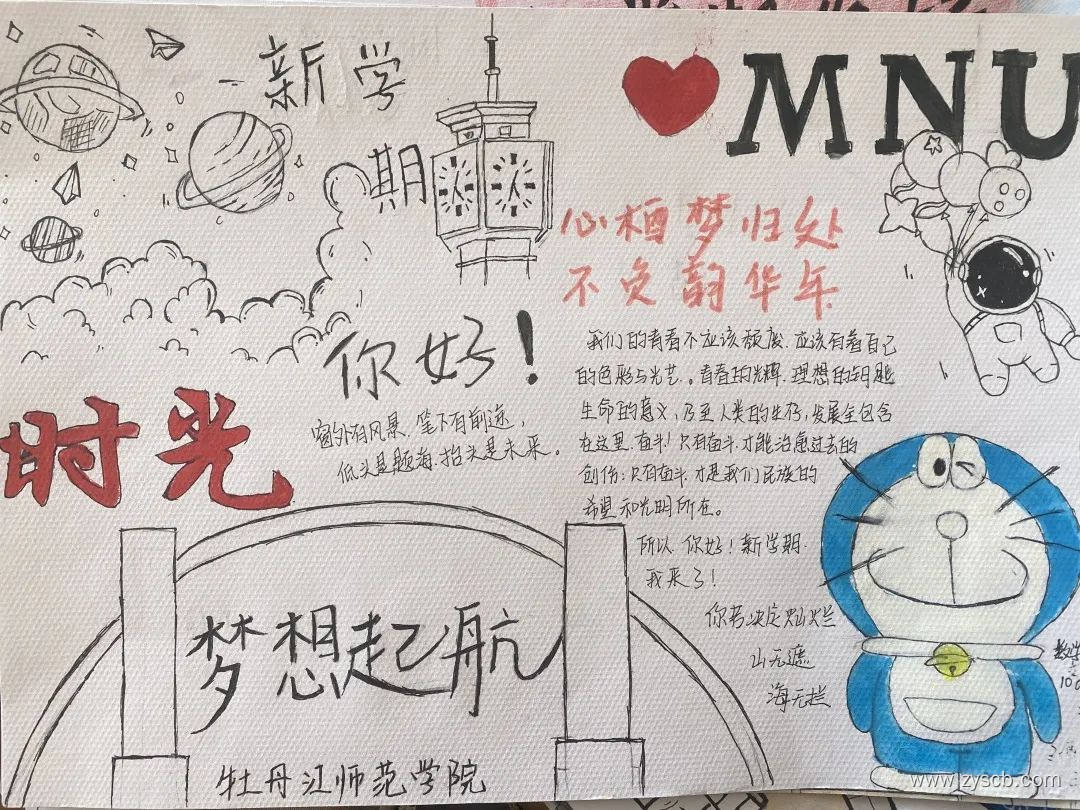 新学
期
你好！
时光
窗外有风景，笔下有前途，
低头是题海，抬头是未来。
梦想起航
牡丹江师范学院
MNU
心栖梦归处
不负韵华年
我们的青春不应该颓废，应该有着自己
的色彩与光芒。青春的光辉，理想的钥匙
生命的意义，乃至人类的生存，发展全包含
在这里，奋斗！只有奋斗，才能治愈过去的
创伤；只有奋斗，才是我们民族的
希望和光明所在。
所以 你好！新学期
我来了！
你若决定灿烂
山无遮
海无拦
www.lzyscb.com